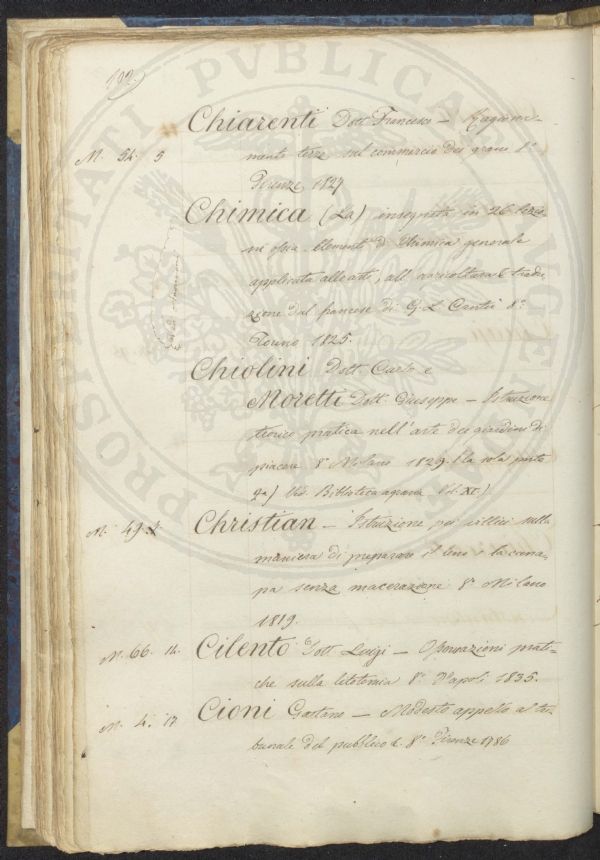 102
Chiarenti Dott. Francesco — Ragiona-
M. 54. 5 mento terzo sul commercio dei grani 8.°
Firenze 1827
Chimica (La) insegnata in 26 Lezio-
ni ossia Elementi di Chimica generale
applicata alle arti, all'agricoltura & tradu-
zione dal francese di G. L. Cantù 8.°
Torino 1825.
Chiolini Dott. Carlo e
Moretti Dott. Giuseppe — Istruzione
teorico pratica nell'arte dei giardini di
piacere 8.° Milano 1829. (la sola parte
2a) Ved. Biblioteca agraria Vol. XI.)
M. 49. Christian — Istruzione pei villici sulla
maniera di preparare il lino e la cana-
pa senza macerazione 8.° Milano
1819.
M. 66. 14. Cilento Dott. Luigi — Osservazioni prati-
che sulla litotomia 8.° Napoli 1835.
M. 4. 17 Cioni Gaetano — Modesto appello al tri-
bunale del pubblico &. 8.° Firenze 1786
PROSPERITATI PUBLICAE AUGENDAE